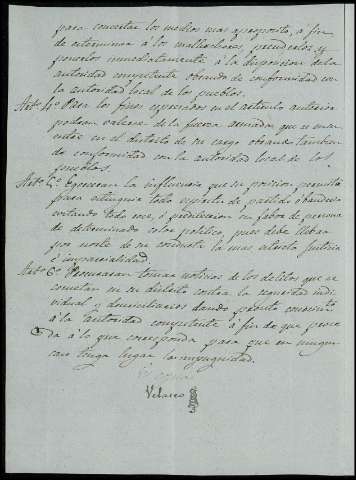 para concertar los medios mas aproposito, a fin
de esterminar á los malhechores, prenderlos, y
ponerlos inmediatamente á la disposicion de la
autoridad competente obrando de conformidad con
la autoridad local de los pueblos.
Artº 4º Para los fines espresados en el articulo anterior
podran valerse de la fuerza armada que se encuentre
en el distrito de su cargo obrando tambien
de conformidad con la autoridad local de los
pueblos.
Artº 5º Egerceran la influencia que su posicion permita
para estinguir todo espiritu de partido o banderia
evitando todo roce, ó predileccion en fabor de persona
de determinado color politico, pues debe llebar
por norte de su conducta la mas estricta justicia
é imparcialidad.
Artº 6º Procuraran tomar noticias de los delitos que se
cometan en su distrito contra la seguridad individual
y domiciliaria dando pronto conocimiento
á la autoridad competente á fin de que proceda
á lo que corresponda para que en ningun
caso tenga lugar la impugnidad.
Velasco